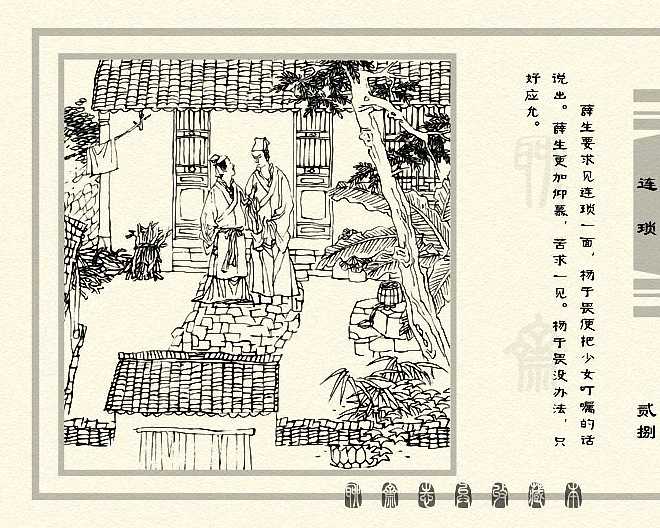 薛生要求见连琐一面，杨于畏便把少女叮嘱的话
说出。薛生更加仰慕，苦求一见。杨于畏没办法，只
好应允。
连琐
贰捌
聊斋志异收藏本